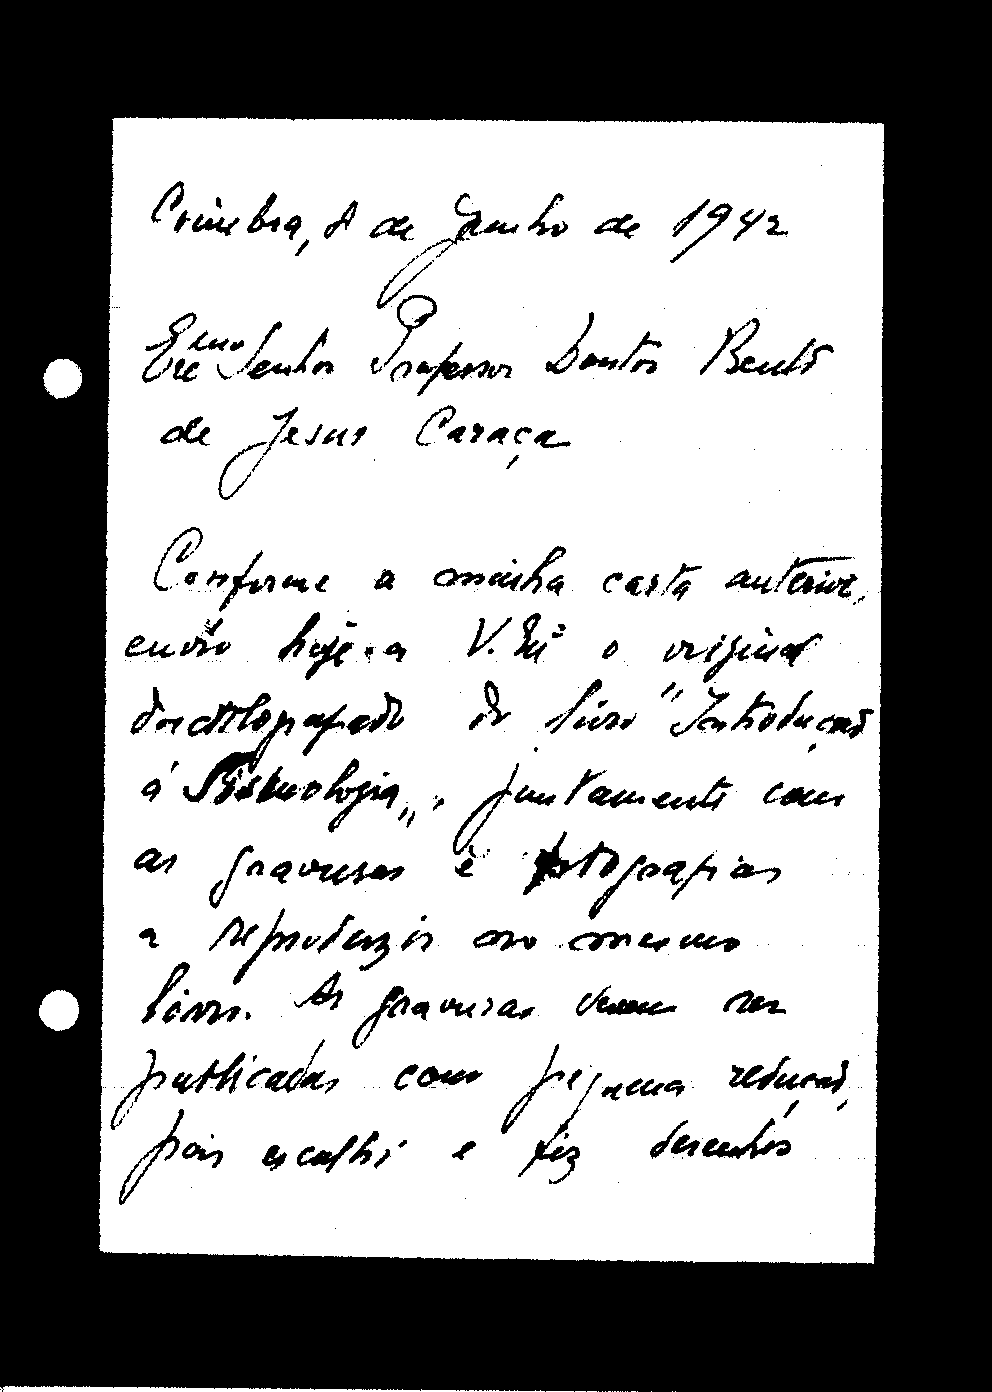 Coimbra, 8 de Junho de 1942
Exmo Senhor Professor Doutor Bento
de Jesus Caraça
Conforme a minha carta anterior,
envio hoje a V. Exª o original
dactilografado do livro "Introdução
á Sismologia", juntamente com
as gravuras e fotografias
a reproduzir no mesmo
livro. As gravuras devem ser
publicadas com pequena redução,
pois escolhi e fiz desenhos